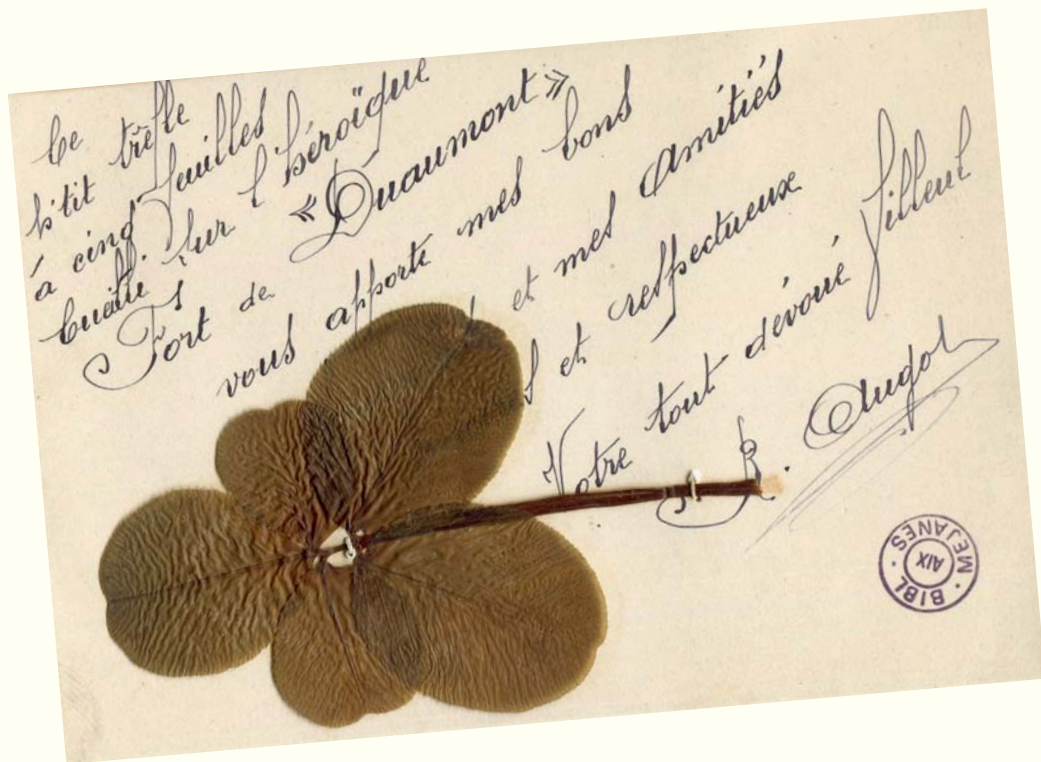 Ce
p'tit trèfle
à cinq feuilles
Cueilli sur l'héroïque
Fort de «Douaumont»
vous apporte mes bons
et mes amitiés
et respectueuse
Votre tout dévoué filleul
R. Augol
BIBL. MEJANES
AIX